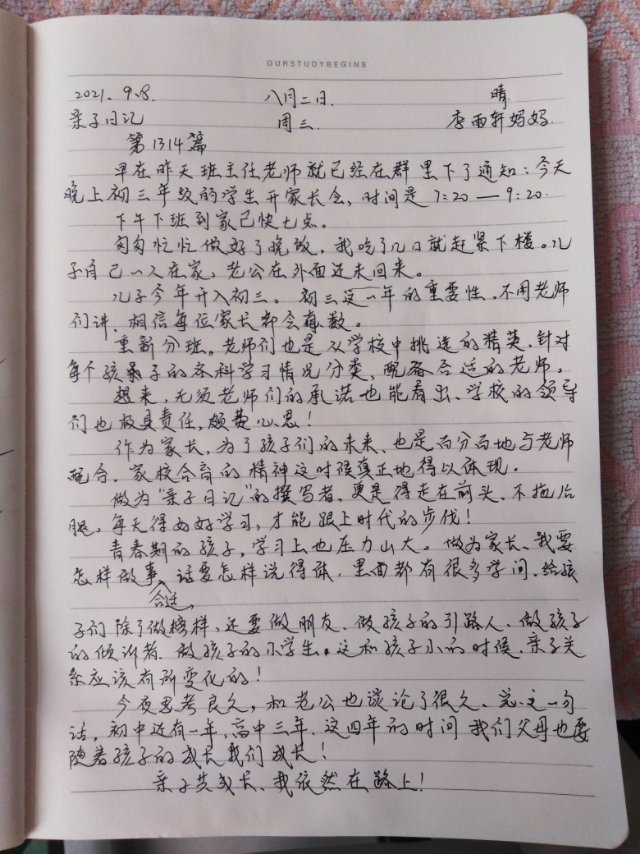 OURSTUDYBEGINS
2021.9.8. 八月二日. 晴
亲子日记 周三. 李雨轩妈妈.
第1314篇
早在昨天班主任老师就已经在群里下了通知:今天
晚上初三年级的学生开家长会,时间是7:20—9:20.
下午下班到家已快七点。
匆匆忙忙做好了晚饭,我吃了几口就赶紧下楼。儿
子自己一人在家,老公在外面还未回来。
儿子今年升入初三。初三这一年的重要性,不用老师
们讲,相信每位家长都会有数。
重新分班。老师们也是从学校中挑选的精英,针对
每个孩子的各科学习情况分类、配备合适的老师。
想来,无须老师们的承诺也能看出,学校的领导
们也极其责任,颇费心思!
作为家长,为了孩子们的未来,也是百分百地与老师
配合,家校合育的精神这时候真正地得以体现。
做为“亲子日记”的撰写者,更是得走在前头,不拖后
腿。每天得好好学习,才能跟上时代的步伐!
青春期的孩子,学习上也压力山大。做为家长,我要
怎样做事合适,话要怎样说得体,里面都有很多学问。给孩
子们除了做榜样,还要做朋友、做孩子的引路人、做孩子
的倾诉者、做孩子的小学生。这和孩子小的时候,亲子关
系应该有所变化的!
今夜思考良久,和老公也谈论了很久,总之一句
话,初中还有一年,高中三年,这四年的时间我们父母也要
随着孩子的成长我们成长!
亲子共成长、我依然在路上!